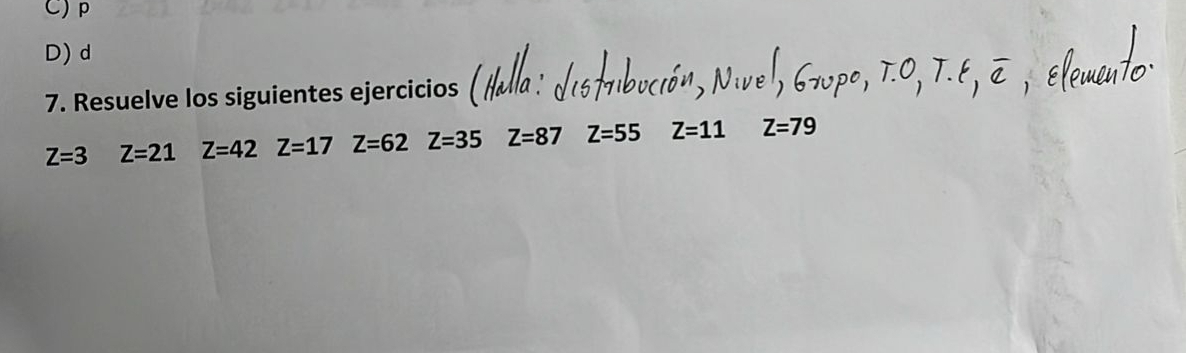 C) p
D) d
7. Resuelve los siguientes ejercicios (Halla: distribución, Nivel, Grupo, T.O, T.E, ē, elemento.
Z=3 Z=21 Z=42 Z=17 Z=62 Z=35 Z=87 Z=55 Z=11 Z=79